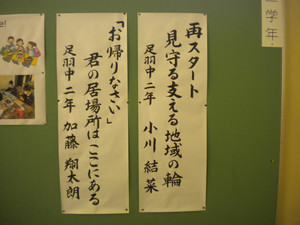 再スタート
見守る支える地域の輪
足羽中二年 小川 結菜
「お帰りなさい」
君の居場所はここにある
足羽中二年 加藤 翔太朗
学年